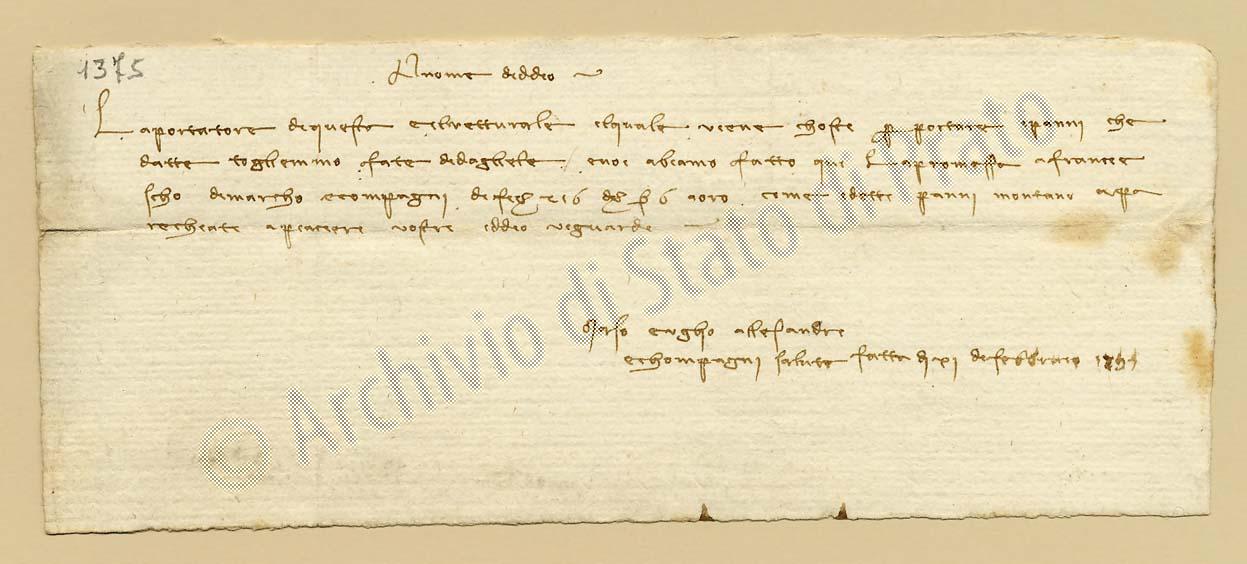 1375
Al nome di ddio
L aportatore di questa e el vetturale il quale viene chosti per portare i panni che
da tte togliemmo fate di dagliele / e noi abiamo fatto qui la promessa a Francie
scho di Marcho e compagni di f 216 s 6 a oro come i detti panni montano a pa
recheate a piaciere vostre iddio vi guardi
allesandro
e chompagni salute fatta dì xi di febraio
© Archivio di Stato di Prato